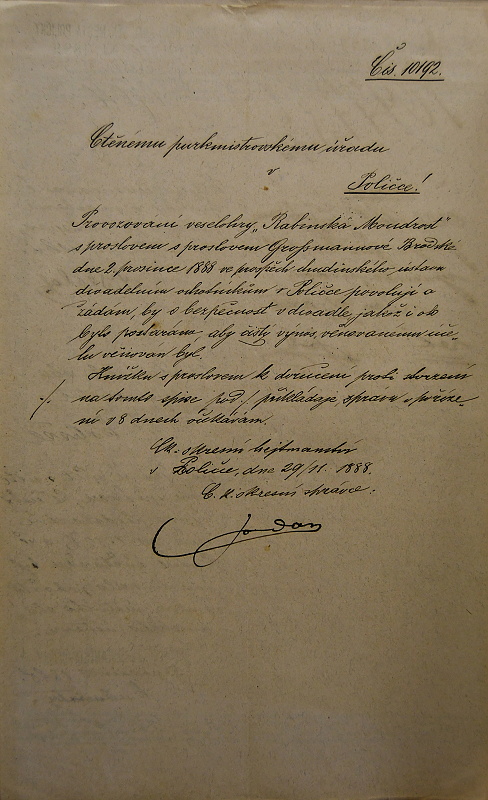 Čís. 10192.
Ctěnému purkmistrovskému úřadu
v
Poličce!
Provozování veselohry „Rabínská Moudrost"
s proslovem s proslovem Großmannové Brodské
dne 2. prosince 1888 ve prospěch chudinského ústavu
divadelním ochotníkům v Poličce povoluji a
žádám, by o bezpečnost v divadle, jakož i o to
bylo postaráno aby čistý výnos, věnovanému úče-
lu věnován byl.
Knížku s proslovem k doručení proti stvrzení
na tomto spise pod ·/. přikládaje zprávu o pořize-
ní v 8 dnech očekávám.
·/.
C.k. okresní hejtmanství
v Poličce, dne 29/11. 1888.
C. k. okresní správce:
Jordan